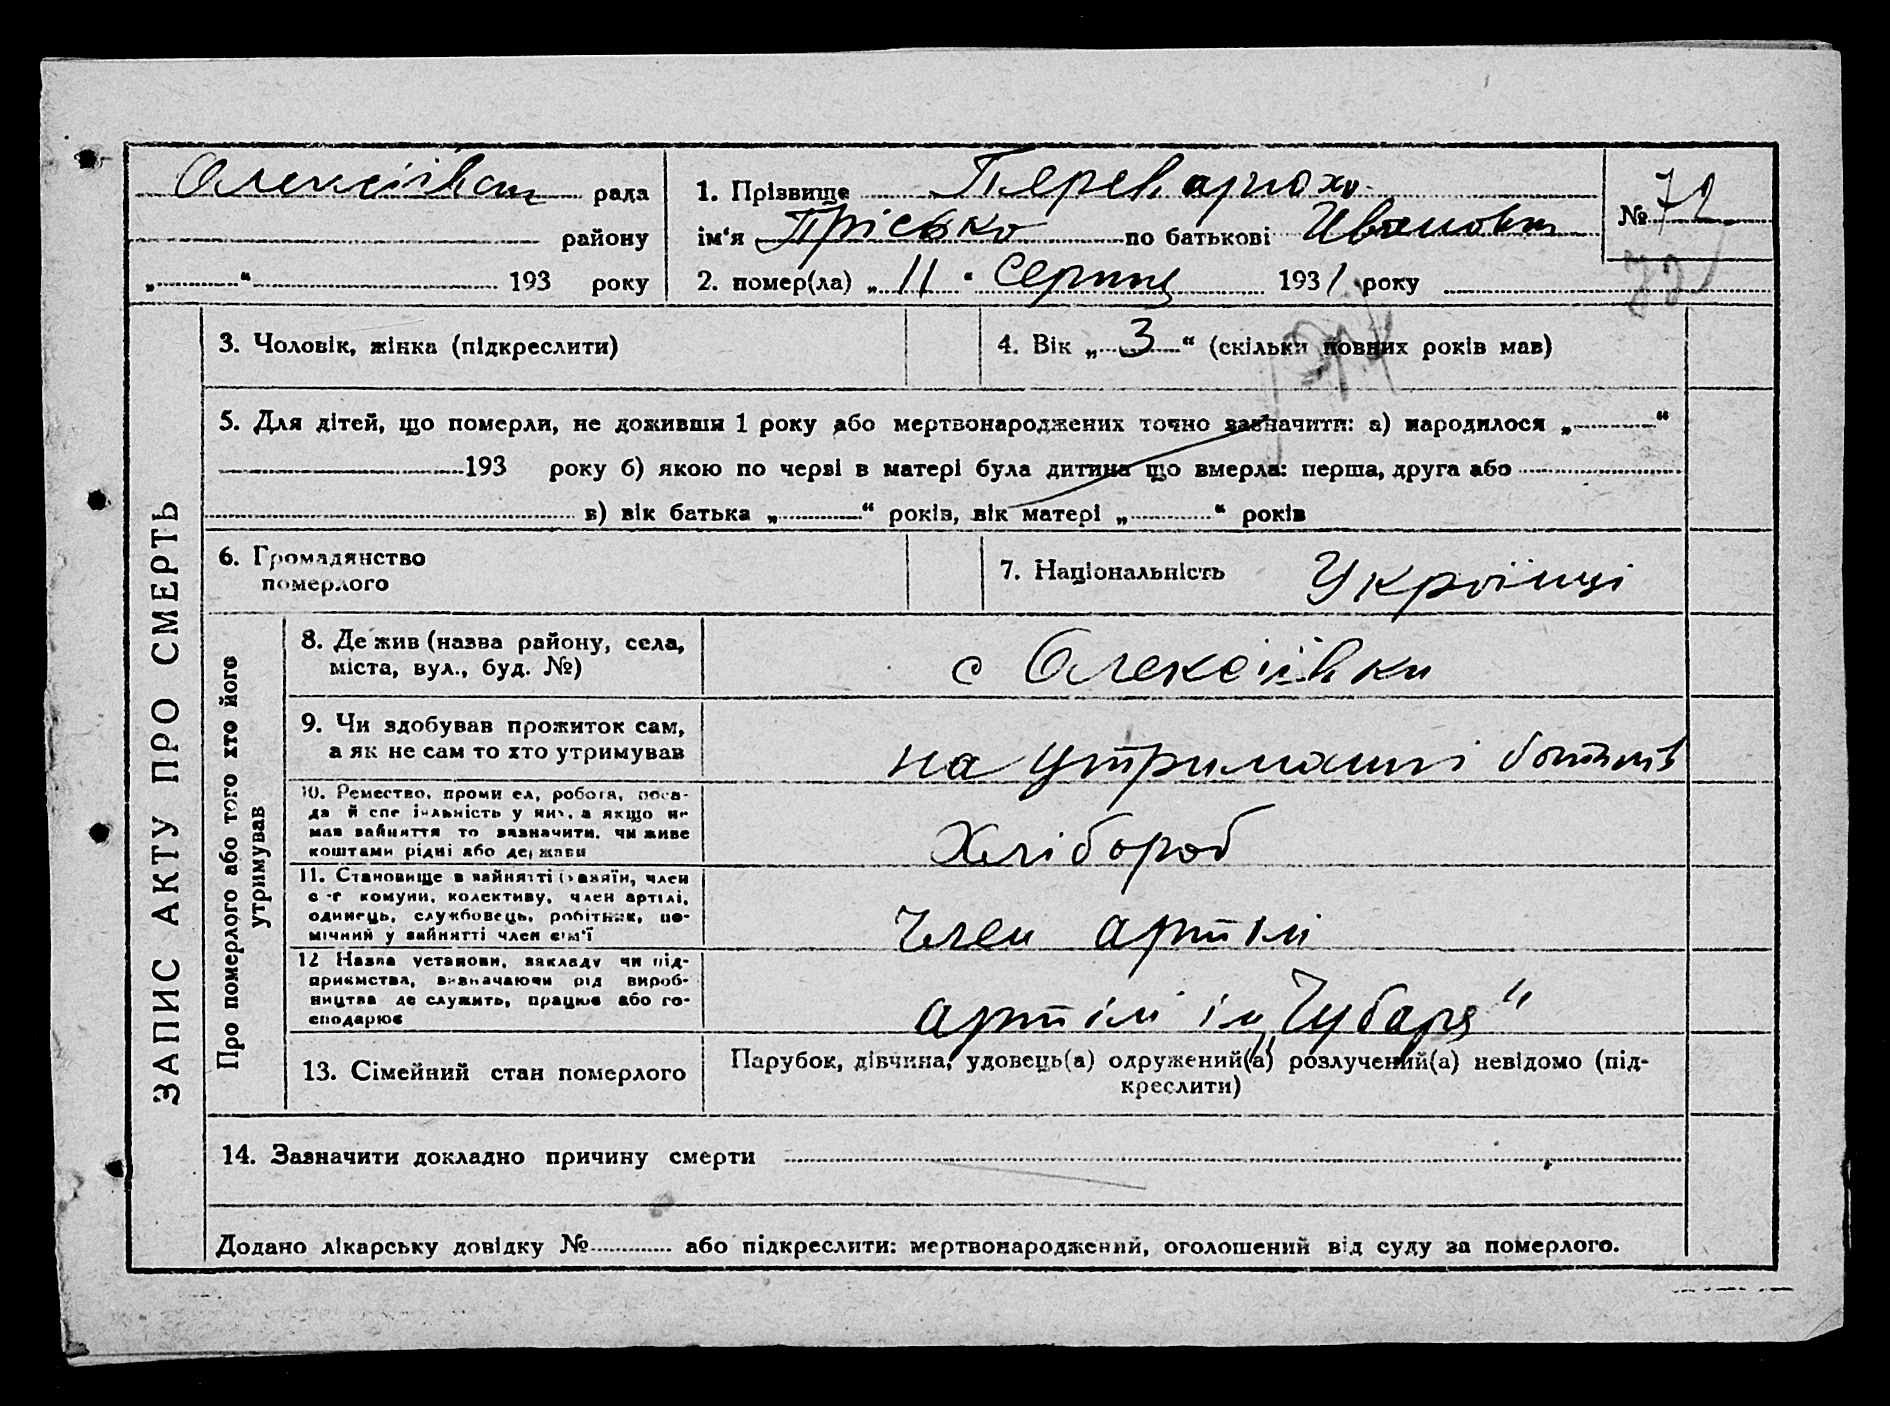 Олексіівськ рада
району
„ “ 193 року
1. Прізвище
ім'я Прісько по батькові Ивановна
2. помер(ла) „ 11 “ Серпня 1931 року
№ 72
3. Чоловік, жінка (підкреслити)
4. Вік „ 3 “ (скільки повних років мав)
5. Для дітей, що померли, не доживши 1 року або мертвонароджених точно зазначити: а) народилося „ “
193 року б) якою по черві в матері була дитина що вмерла: перша, друга або
в) вік батька „ “ років, вік матері „ “ років
6. Громадянство
померлого
7. Національність Україньці
ЗАПИС АКТУ ПРО СМЕРТЬ
Про померлого або того хто його
утримував
8. Де жив (назва району, села,
міста, вул., буд. №)
с Олексіівки
9. Чи здобував прожиток сам,
а як не сам то хто утримував
на утриманні батьків
10. Ремество, промисел, робота, поса-
да й спеціяльність у них, а якщо не
мав зайняття то зазначити, чи живе
коштами рідні або держави
Хлібороб
11. Становище в зайнятті (хазяїн, член
с-г комуни, колективу, член артілі,
одинець, службовець, робітник, по-
мічний у зайнятті член сім'ї
Член артілі
12 Назва установи, закладу чи під-
приємства, визначаючи рід вироб-
ництва де служить, працює або го-
сподарює
артілі ім Чубаря"
13. Сімейний стан померлого
Парубок, дівчина, удовець(а) одружений(а) розлучений(а) невідомо (під-
креслити)
14. Зазначити докладно причину смерти
Додано лікарську довідку № або підкреслити: мертвонароджений, оголошений від суду за померлого.